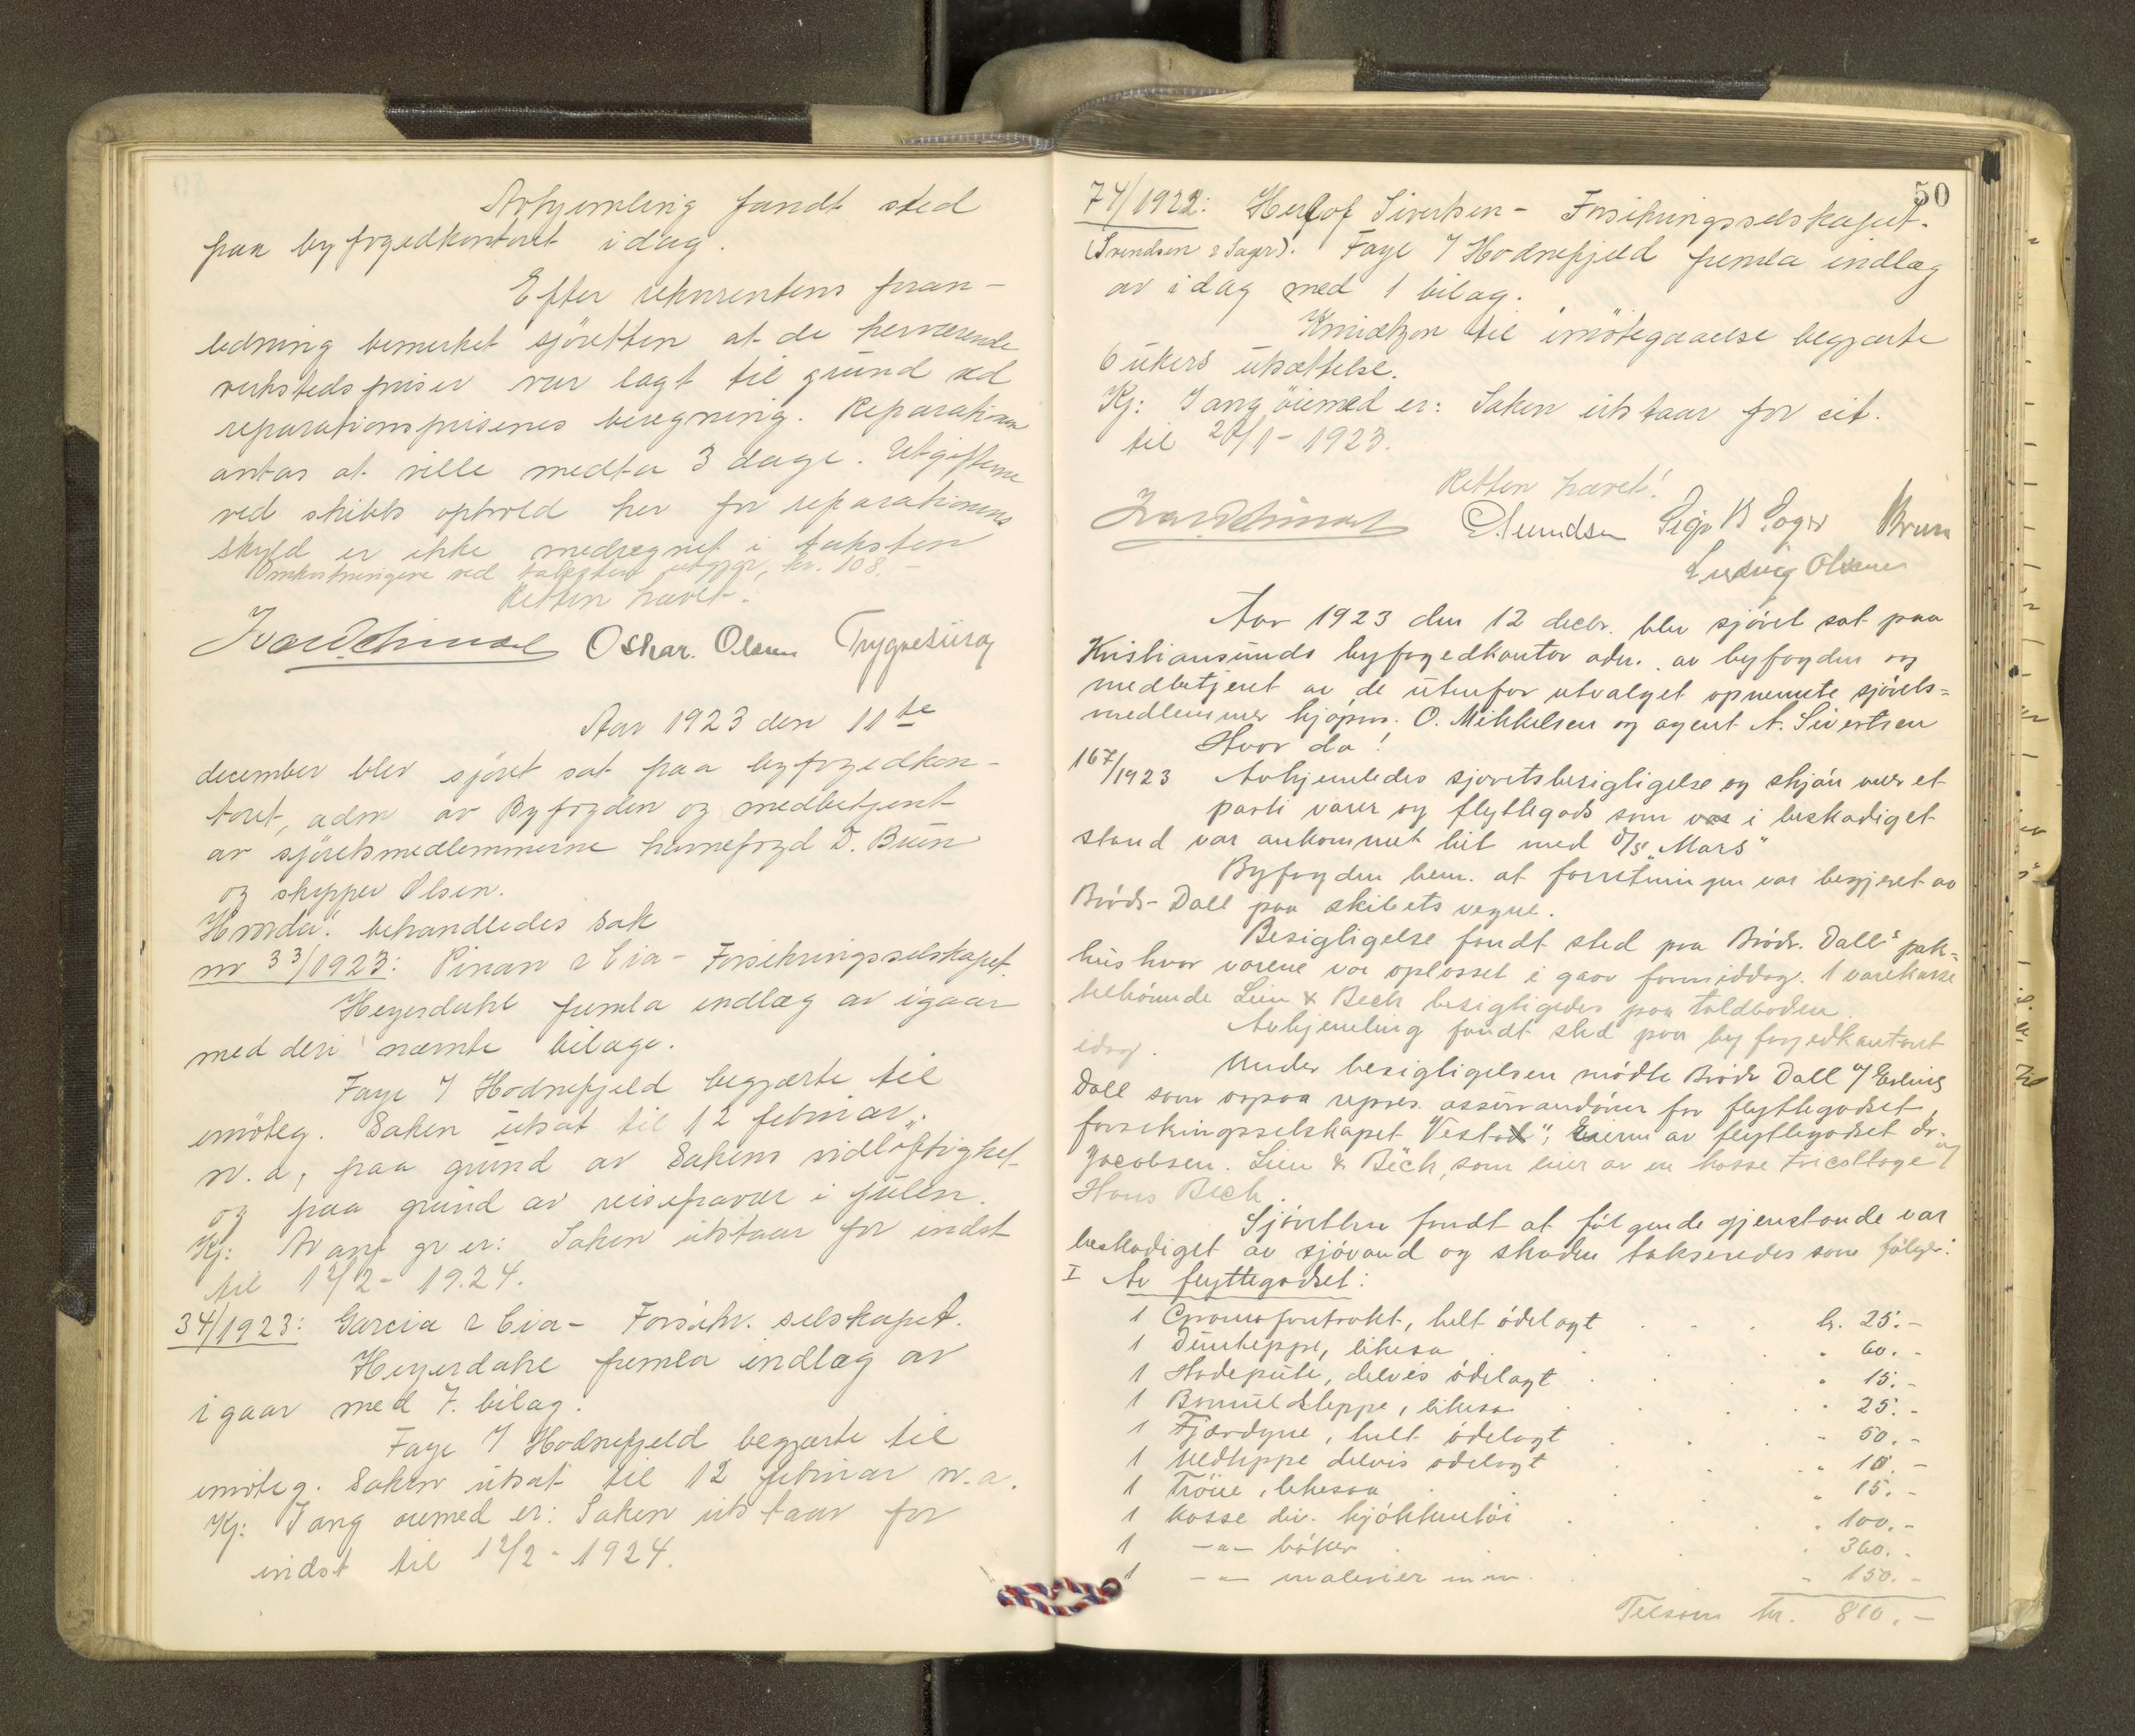 Avhjemling fandt sted
paa byfogedkontoret idag.
Efter rekvirentens foran-
ledning bemerket sjöretten at de herværende
verkstedspriser var lagt til grund ved
reparationsprisenes beregning. Reparationen
antas at ville medta 3 dage. Utgifterne
ved skibets ophold her for reparationens
skyld er ikke medregnet i taksten
Omkostningene ved taksten utgjør, kr. 108.-
Retten hævet.
Oskar. Olsen
Aar 1923 den 11te
december blev sjöret sat paa byfogedkon-
toret, adm av Byfogden og medbetjent
av sjöretsmedlemmerne havnefogd D. Brun
og skipper Olsen.
Hvorda! behandledes sak
nr 33/1923: Pinan & Cia - Forsikringsselskapet.
Heyerdahl fremla indlæg av igaar
med deri nævnte bilage.
Faye / Hodnefjeld begjærte til
imöteg. Saken utsat til 12 februar
n.a, paa grund av sakens vidlöftighet
og paa grund av reisefravær i julen.
Kj: Av anf gr er: Saken utstaar for indst
til 12/2 - 1924.
34/1923: Garcia & Cia - Forsikr. selskapet.
Heyerdahl fremla indlæg av
igaar med 7. bilag.
Faye / Hodnefjeld begjærte til
imöteg. Saken utsat til 12 februar n.a.
Kj: I ang öiemed er: Saken utstaar for
indst til 12/2 - 1924.
50
74/1922: Herlof Sivertsen - Forsikringsselskapet.
(Svendsen & Sager). Faye / Hodnefjeld fremla indlæg
av idag med 1 bilag.
til imötegaaelse begjærte
6 ukers utsættelse.
Kj: I ang öiemed er: Saken utstaar for eit.
til 1923.
Retten hævet!
Brun
Ludvig Olsen
Aar 1923 den 12 decbr. blev sjöret sat paa
Kristiansunds byfogedkontor adm. av byfogden og
medbetjent av de utenfor utvalget opnevnte sjörets=
medlemmer kjöpm. O. Mikkelsen og agent A. Sivertsen
Hvor da!
167/1923 Avhjemledes sjøretsbesigtigelse og skjön over et
parti varer og flyttegods som var i beskadiget
stand var ankommet hit med D/S "Mars"
Byfogden bem. at forretningen var begjæret av
Brödr. Dall paa skibets vegne.
Besigtigelse fandt sted paa Brödr. Dall's pak=
hus hvor varene var oplosset i gaar formiddag. 1 varekasse
tilhörende Lien & Bech besigtigedes paa toldboden.
Avhjemling fandt sted paa byfogedkontoret
idag.
Under besigtigelsen mödte Brödr Dall v/ Erling
Dall som ogsaa repres. assurandören for flyttegodset,
forsikringsselskapet "Vesta", Eieren av flyttegodset dr.
Jacobsen. Lien & Bech, som eier av en kasse tricottage v/
Hans Bech.
Sjöretten fandt at fölgende gjenstande var
beskadiget av sjövand og skaden takseredes som fölger:
I Av flyttegodset:
1 helt ödelagt kr. 25.-
1 Dunteppe, likesa " 60.-
1 Hodepute, delvis ödelagt " 15.-
1 Bomuldsteppe, likesa " 25.-
1 Fjærdyne, helt ödelagt " 50.-
1 Uldteppe delvis ödelagt " 10.-
1 Tröie, likesaa " 15.-
1 kasse div. kjökkentöi " 100.-
1 -"- böker " 360.-
1 -"- malerier m.m. " 150.-
Tilsam kr. 810.-